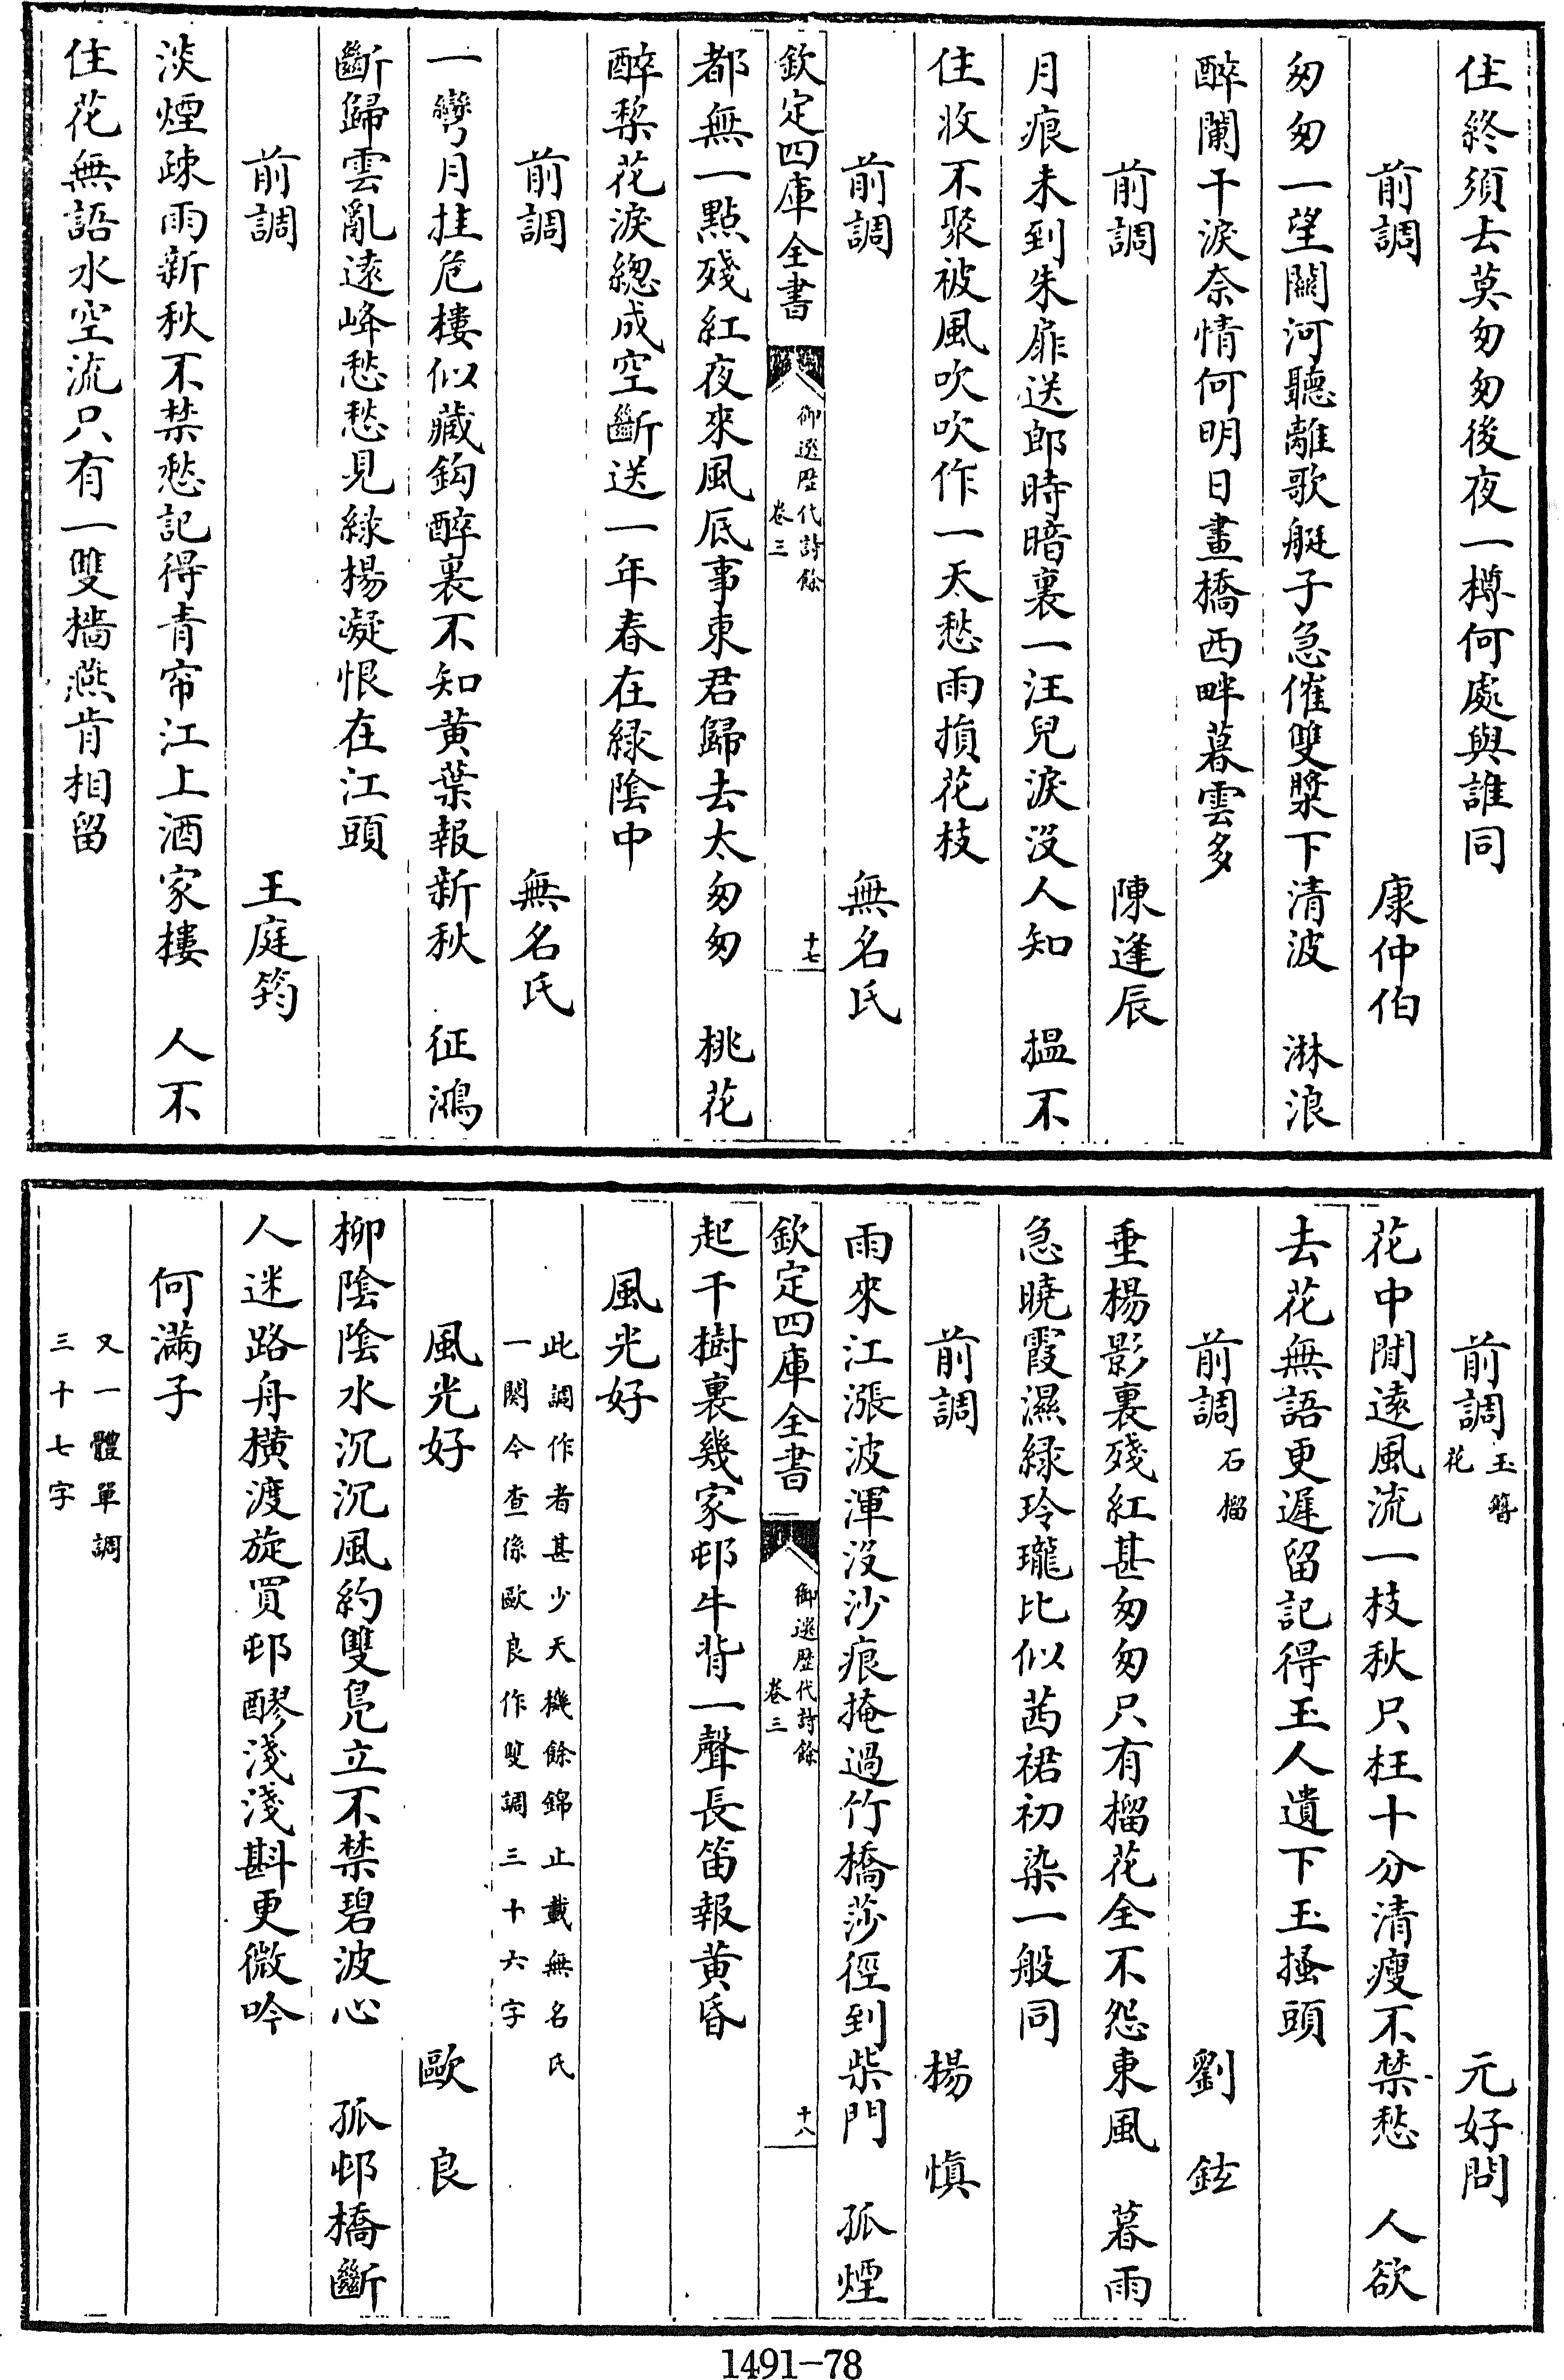 住終須去莫匆匆後夜一樽何處與誰同
前調 康仲伯
匆匆一望關河聽離歌艇子急催雙槳下清波 淋浪
醉闌干淚奈情何明日畫橋西畔暮雲多
前調 陳逢辰
月痕未到朱扉送郎時暗裏一汪兒淚沒人知 揾不
住收不聚被風吹吹作一天愁雨損花枝
前調 無名氏
欽定四庫全書 御選歷代詩餘 卷三 十七
都無一點殘紅夜來風底事東君歸去太匆匆 桃花
醉棃花淚總成空斷送一年春在緑陰中
前調 無名氏
一彎月挂危樓似藏鈎醉裏不知黄葉報新秋 征鴻
斷歸雲亂逺峰愁愁見緑楊凝恨在江頭
前調 王庭筠
淡煙疎雨新秋不禁愁記得青帘江上酒家樓 人不
住花無語水空流只有一雙檣燕肯相留
前調 玉簪花 元好問
花中閒逺風流一枝秋只枉十分清瘦不禁愁 人欲
去花無語更遲留記得玉人遺下玉搔頭
前調 石榴 劉鉉
垂楊影裏殘紅甚匆匆只有榴花全不怨東風 暮雨
急曉霞濕緑玲瓏比似茜裙初染一般同
前調 楊慎
雨來江漲波渾沒沙痕掩過竹橋莎徑到柴門 孤煙
欽定四庫全書 御選歷代詩餘 卷三 十八
起千樹裏幾家邨牛背一聲長笛報黄昏
風光好
此調作者甚少天機餘錦止載無名氏
一闋今查係歐良作雙調三十六字
風光好 歐良
柳陰陰水沉沉風約雙鳧立不禁碧波心 孤邨橋斷
人迷路舟橫渡旋買邨醪淺淺斟更微吟
何滿子
又一體單調
三十七字
1491-78